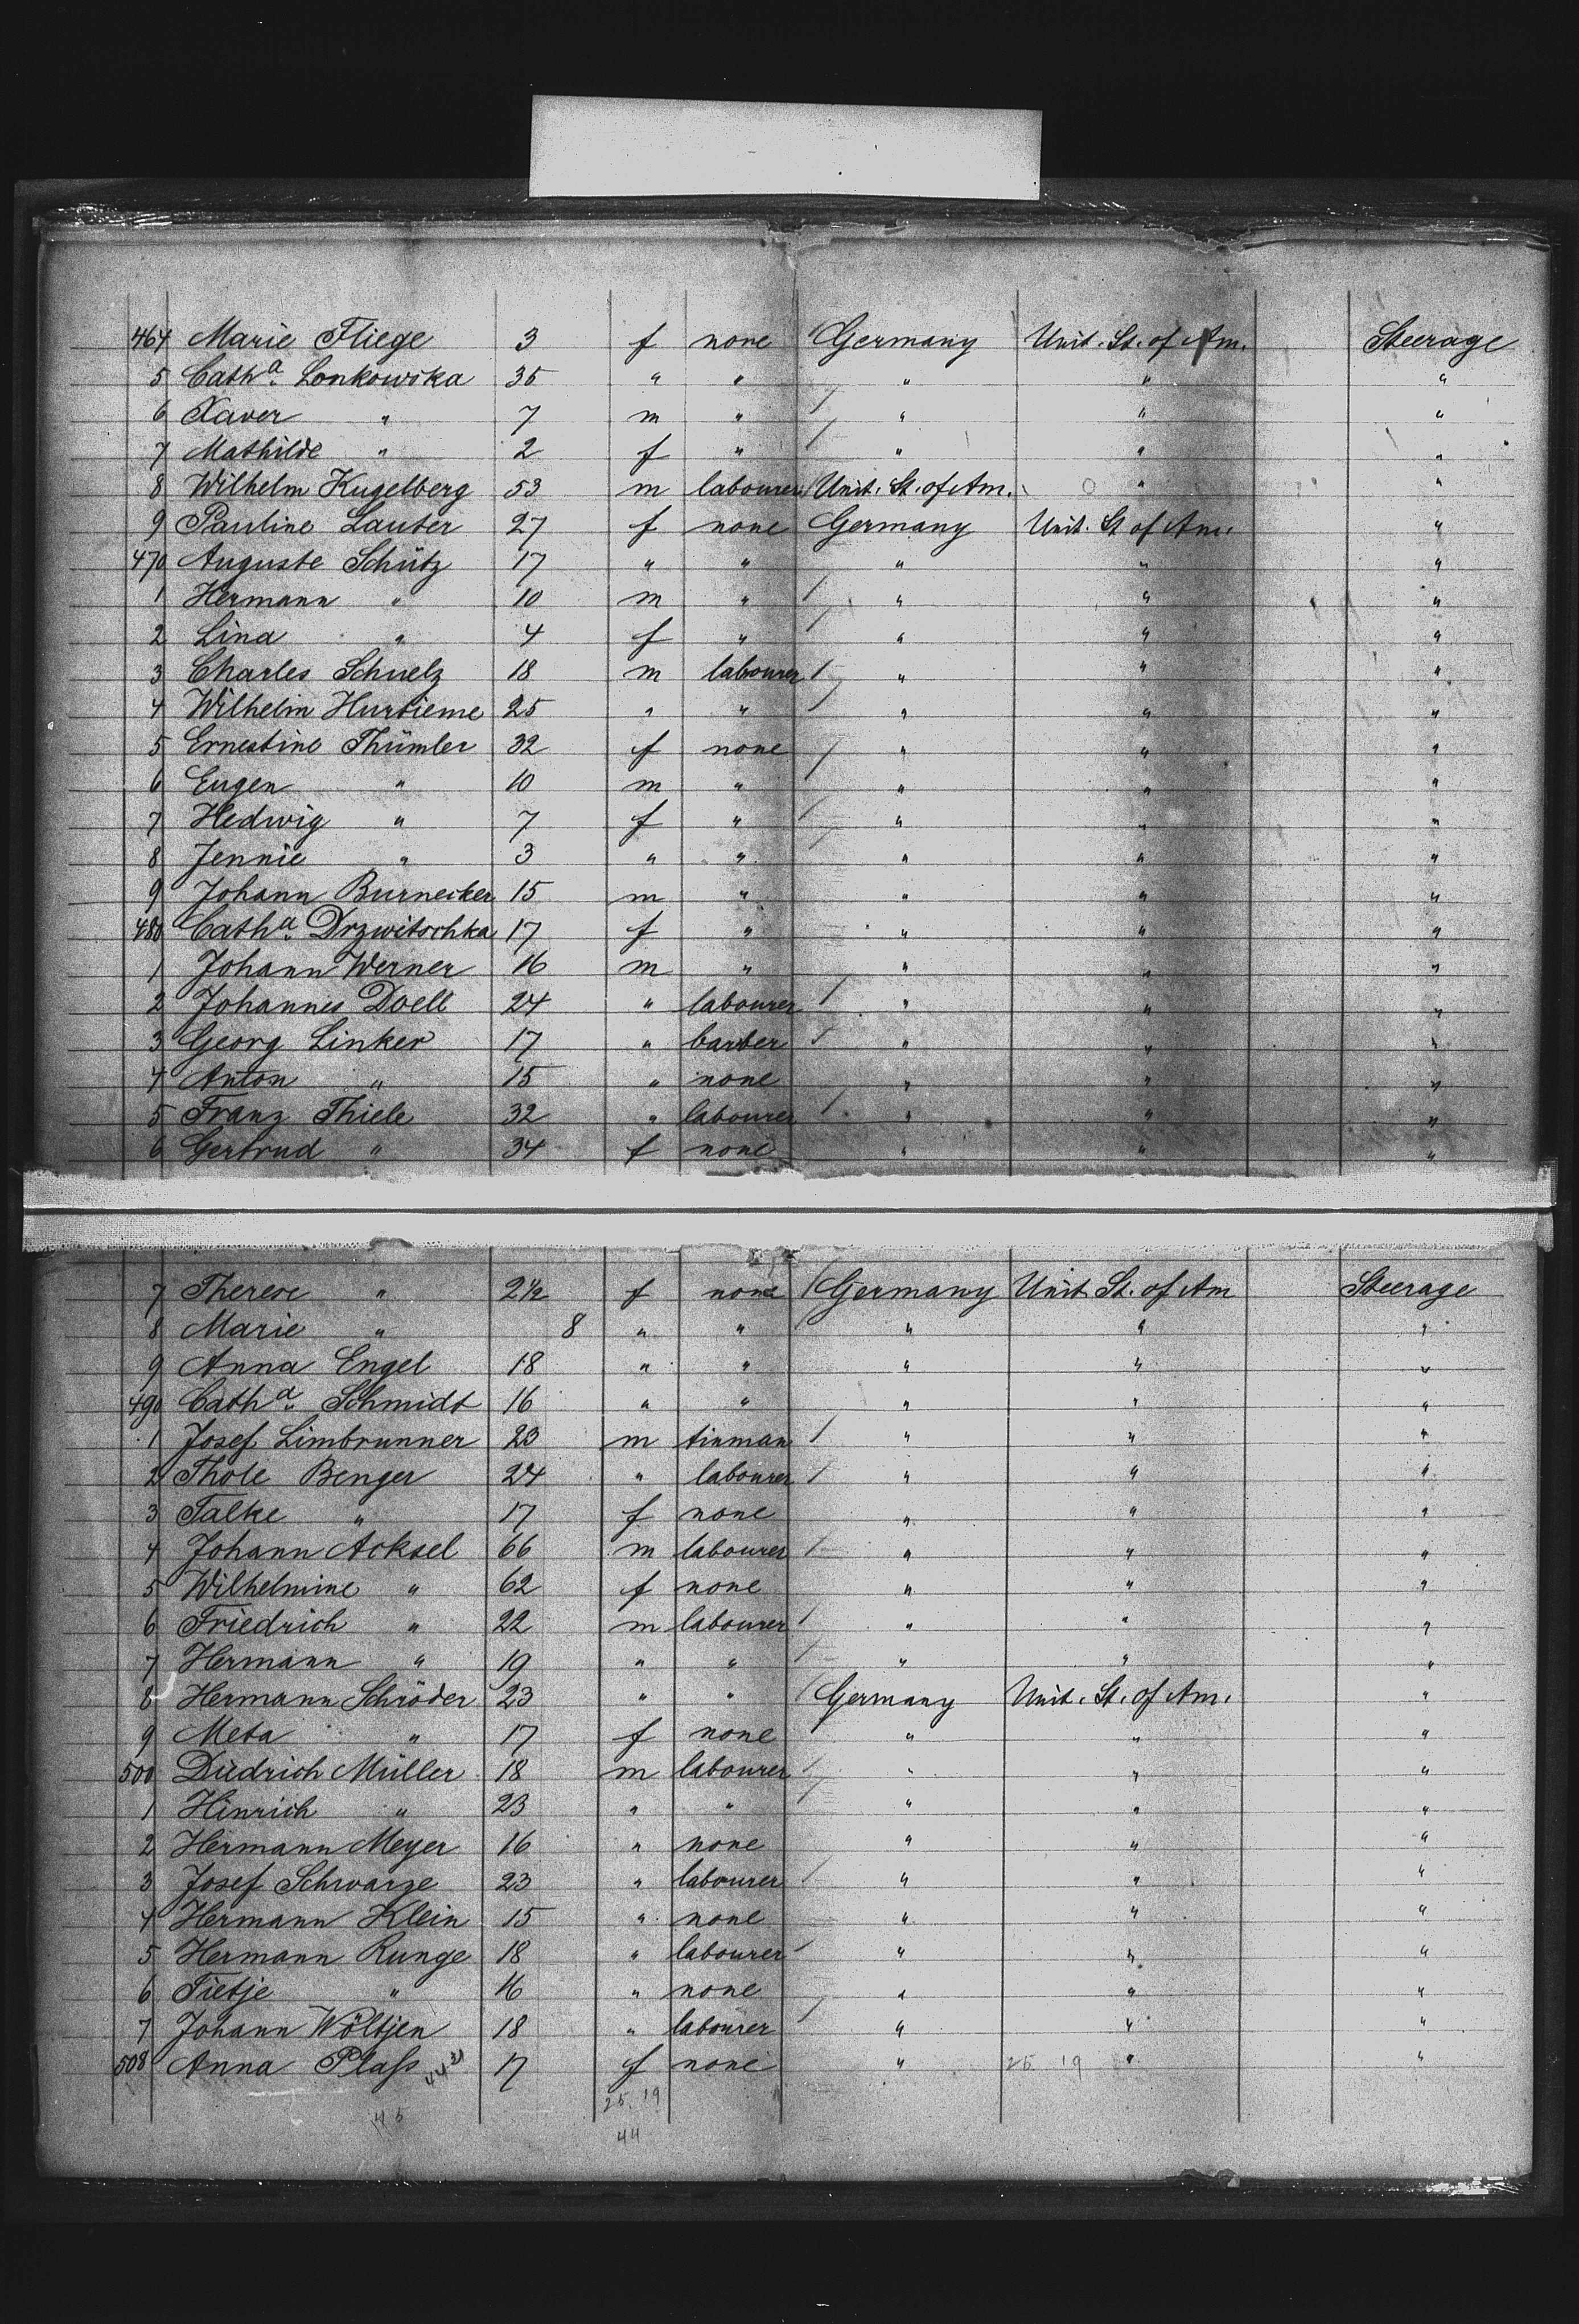 464 Marie Fliege 3 f none Germany Unit. St. of Am. Steerage
5 Cath<sup>a</sup>. Lonkowska 35 " " " " "
6 Xaver " 7 m " " " "
7 Mathilde " 2 f " " " "
8 Wilhelm Kugelberg 53 m labourer Unit. St. of Am. " "
9 Pauline Lauber 27 f none Germany Unit. St of Am. "
470 Auguste Schütz 17 " " " " "
1 Hermann " 10 m " " " "
2 Lina " 4 f " " " "
3 Charles Schuelz 18 m labourer " " "
4 Wilhelm Hurtieme 25 " " " " "
5 Ernestine Thümler 32 f none " " "
6 Eugen " 10 m " " " "
7 Hedwig " 7 f " " " "
8 Jennie " 3 " " " " "
9 Johann Burnecker 15 m " " " "
480 Cath<sup>a</sup>. Drzwitschka 17 f " " " "
1 Johann Werner 16 m " " " "
2 Johannes Doell 24 " labourer " " "
3 Georg Linker 17 " barber " " "
4 Anton " 15 " none " " "
5 Franz Thiele 32 " labourer " " "
6 Gertrud " 34 f none " " "
7 Therese " 2 1/2 f none Germany Unit St. of Am Steerage
8 Marie " 8 " " " " "
9 Anna Engel 18 " " " " "
490 Cath<sup>a</sup>. Schmidt 16 " " " " "
1 Josef Limbrunner 23 m tinman " " "
2 Thole Benger 24 " labourer " " "
3 Talke " 17 f none " " "
4 Johann Acksel 66 m labourer " " "
5 Wilhelmine " 62 f none " " "
6 Friedrich " 22 m labourer " " "
7 Hermann " 19 " " " " "
8 Hermann Schröder 23 " " Germany Unit. St. of Am. "
9 Meta " 17 f none " " "
500 Diedrich Müller 18 m labourer " " "
1 Hinrich " 23 " " " " "
2 Hermann Meyer 16 " none " " "
3 Josef Schwarze 23 " labourer " " "
4 Hermann Klein 15 " none " " "
5 Hermann Runge 18 " labourer " " "
6 Tietje " 16 " none " " "
7 Johann Wöltjen 18 " labourer " " "
508 Anna Plaſs 17 f none " 25 19 " "
25. 19
45
44